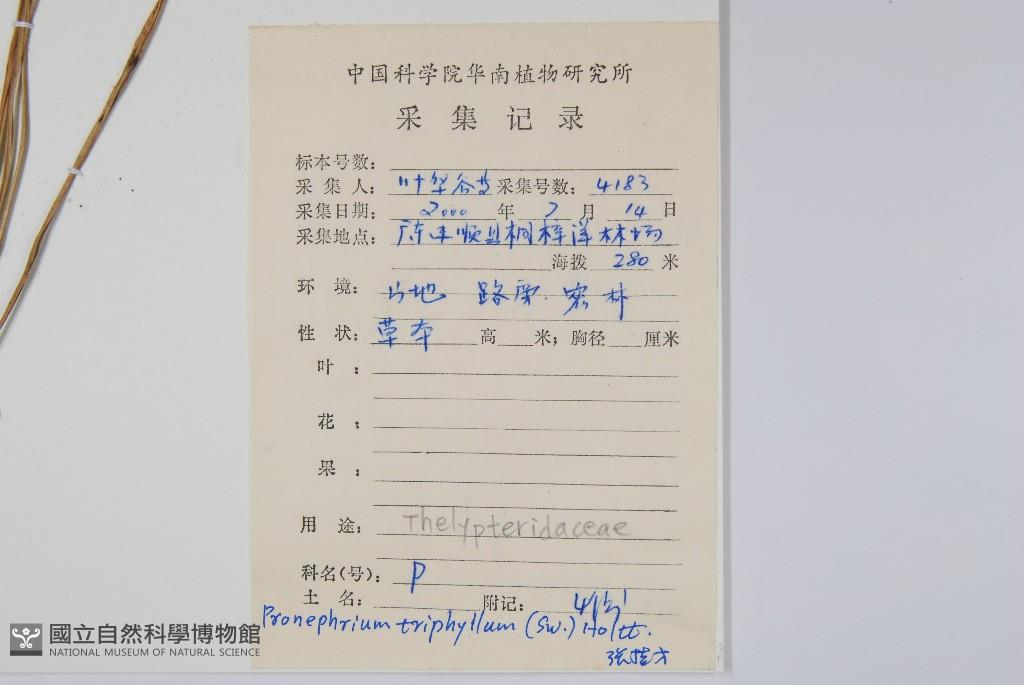 中国科学院华南植物研究所
采集记录
标本号数：
采集人：叶华谷等 采集号数：4183
采集日期：2000 年 7 月 14 日
采集地点：广东丰顺县桐梓洋林场
海拨 280 米
环境：山地 路旁 密林
性状：草本 高 米；胸径 厘米
叶：
花：
果：
用途：
Thelypteridaceae
科名(号)：P
土名： 附记：
Pronephrium triphyllum (Sw.) Holtt.
國立自然科學博物館
NATIONAL MUSEUM OF NATURAL SCIENCE